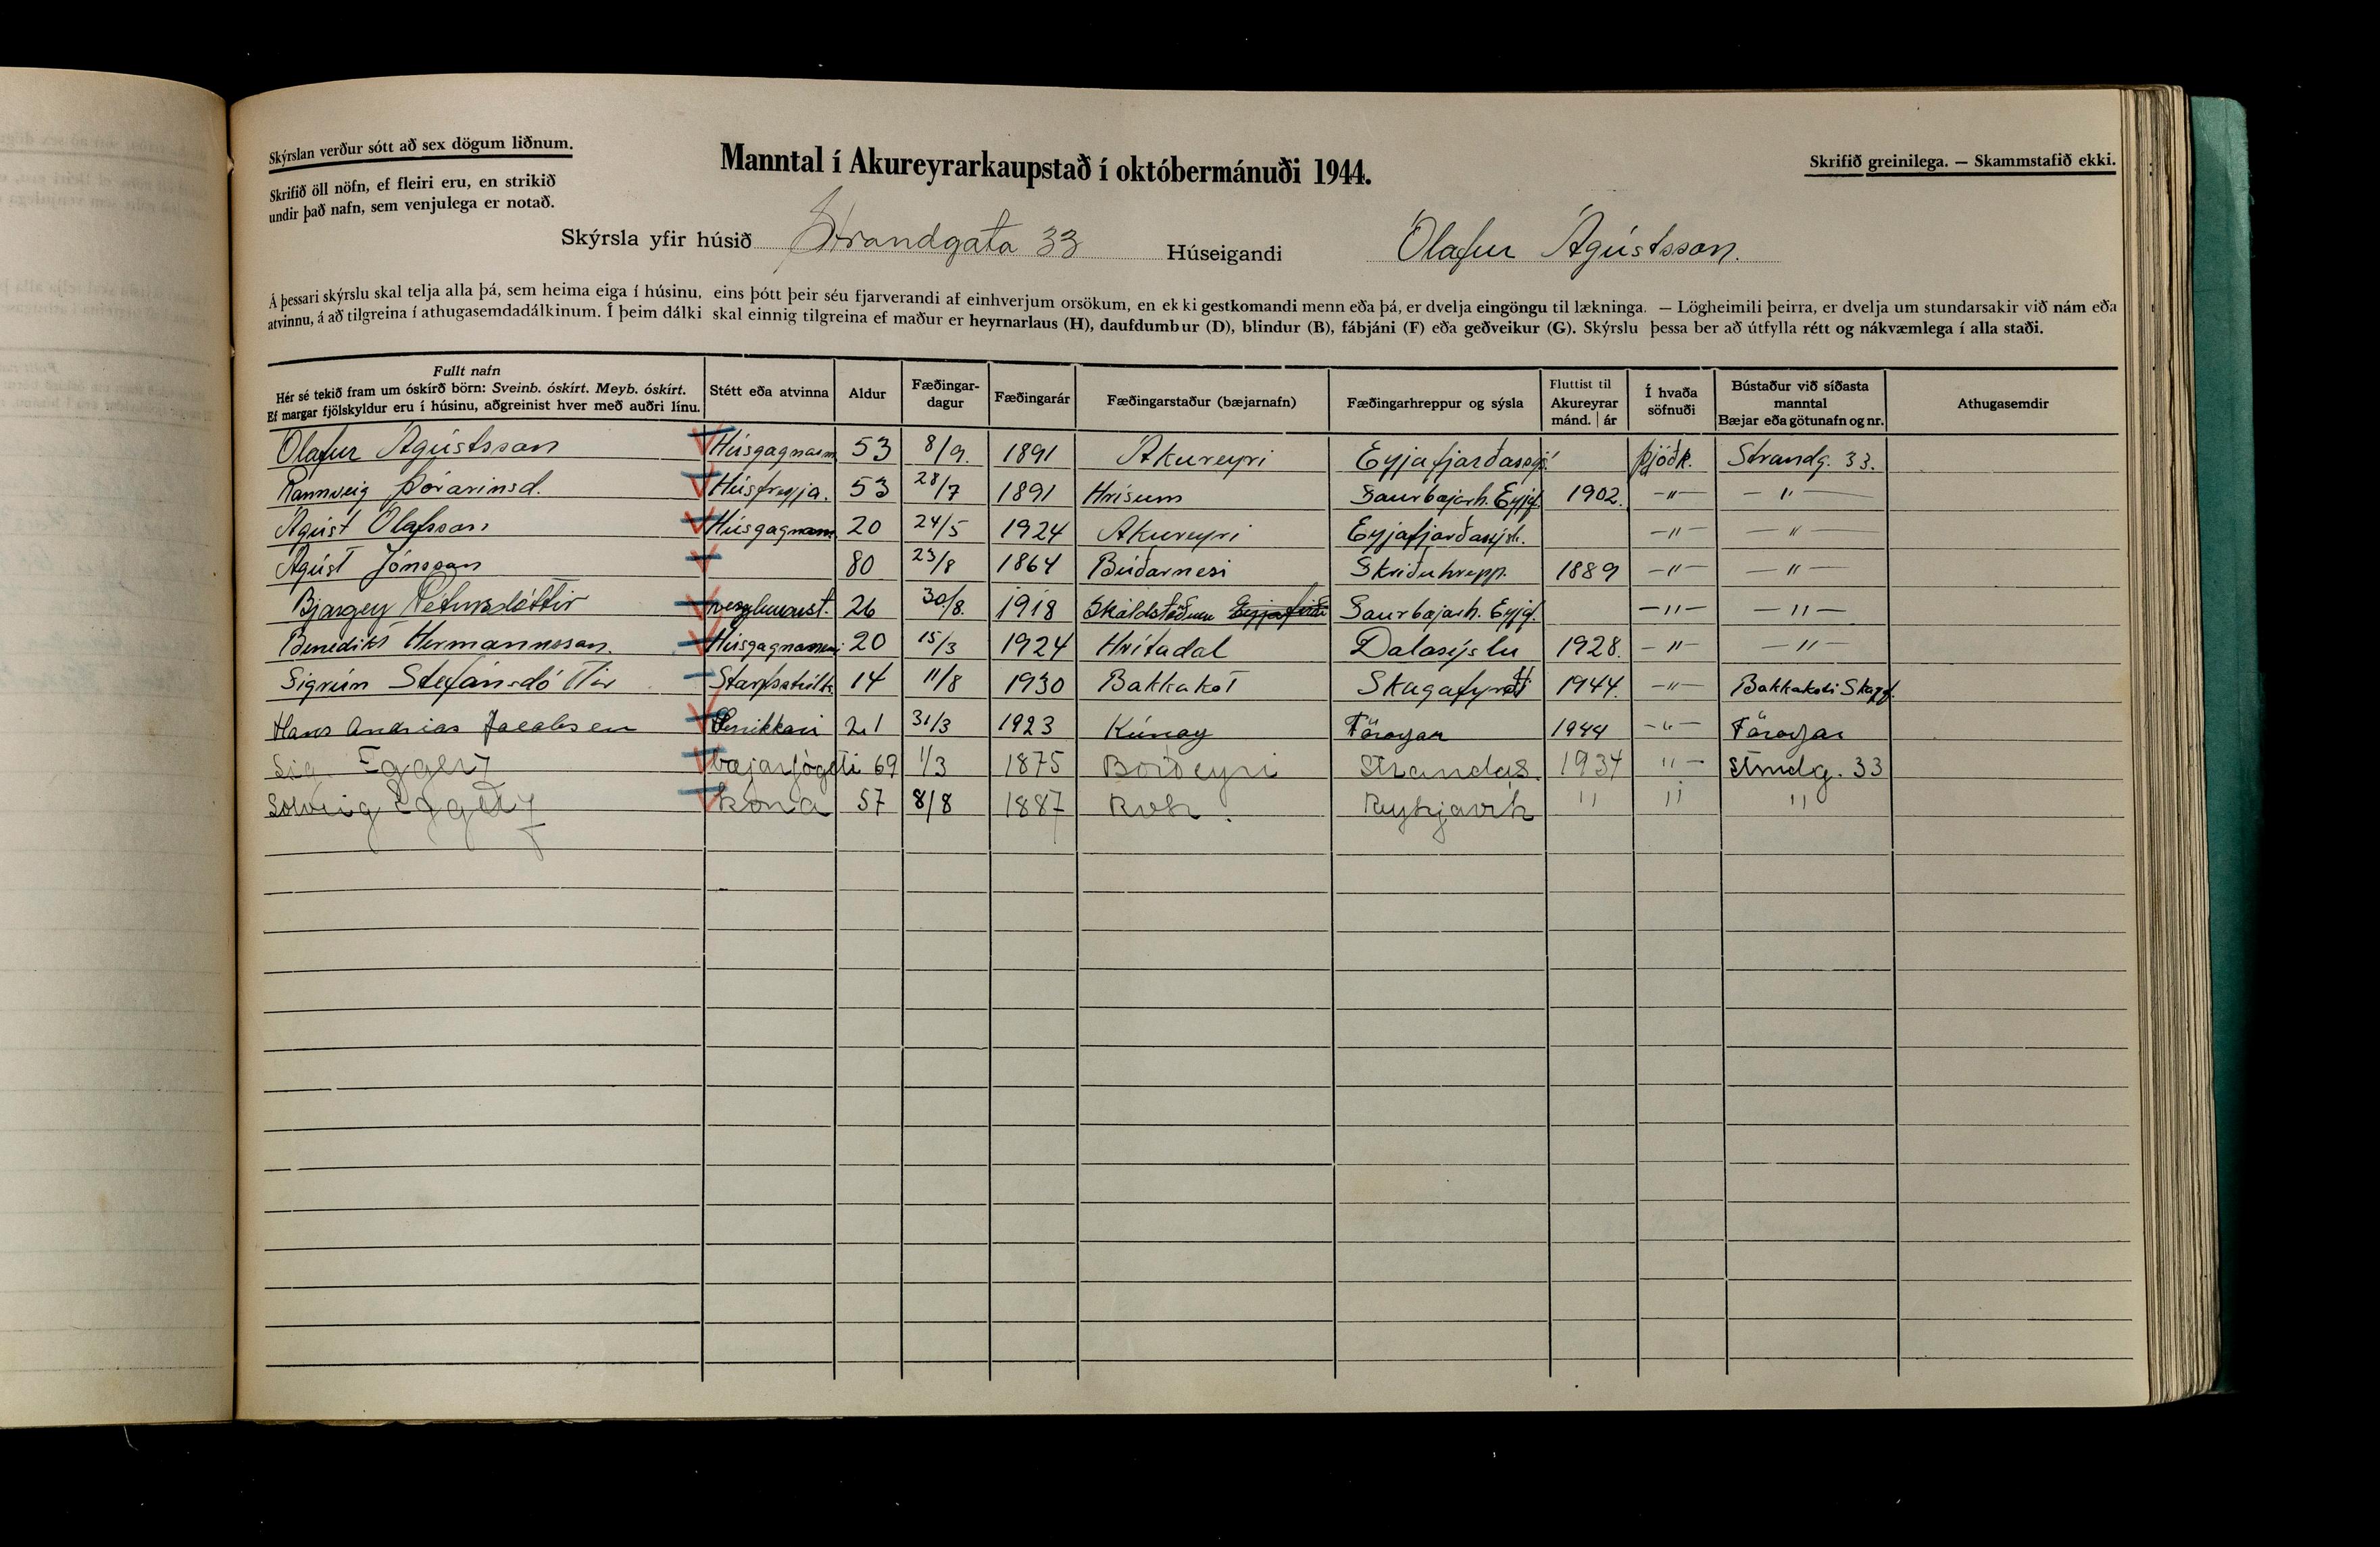 Skýrslan verður sótt að sex dögum liðnum.
Skrifið öll nöfn, ef fleiri eru, en strikið
undir það nafn, sem venjulega er notað.
Manntal í Akureyrarkaupstað í októbermánuði 1944.
Skrifið greinilega. — Skammstafið ekki.
Skýrsla yfir húsið Strandgata 33 Húseigandi Ólafur Ágústsson.
Á þessari skýrslu skal telja alla þá, sem heima eiga í húsinu, eins þótt þeir séu fjarverandi af einhverjum orsökum, en ekki gestkomandi menn eða þá, er dvelja eingöngu til lækninga. — Lögheimili þeirra, er dvelja um stundarsakir við nám eða
atvinnu, á að tilgreina í athugasemdadálkinum. Í þeim dálki skal einnig tilgreina ef maður er heyrnarlaus (H), daufdumbur (D), blindur (B), fábjáni (F) eða geðveikur (G). Skýrslu þessa ber að útfylla rétt og nákvæmlega í alla staði.
Fullt nafn
Hér sé tekið fram um óskírð börn: Sveinb. óskírt. Meyb. óskírt.
Ef margar fjölskyldur eru í húsinu, aðgreinist hver með auðri línu.
Stétt eða atvinna
Aldur
Fæðingar-
dagur
Fæðingarár
Fæðingarstaður (bæjarnafn)
Fæðingarhreppur og sýsla
Fluttist til
Akureyrar
mánd. | ár
Í hvaða
söfnuði
Bústaður við síðasta
manntal
Bæjar eða götunafn og nr.
Athugasemdir
Ólafur Ágústsson Húsgagnasm. 53 8/9. 1891 Akureyri Eyjafjarðarsýs. þjóðk. Strandg. 33.
Rannveig Þórarinsd. Húsfreyja. 53 28/7 1891 Hrísum Saurbæjarh. Eyjf. 1902. -"- -"-
Ágúst Ólafsson Húsgagnasm 20 24/5 1924 Akureyri Eyjafjarðasýsl. -"- -"-
Ágúst Jónsson 80 23/8 1864 Búðarnesi Skriðuhrepp. 1889 -"- -"-
Bjargey Pétursdóttir 26 30/8. 1918 Skáldstöðum Eyjafirði Saurbæjarh. Eyjf. -"- -"-
Benedikt Hermannsson. 20 15/3 1924 Hvítadal Dalasýslu 1928. -"- -"-
Sigrún Stefánsdóttir Starfsstúlka 14 11/8 1930 Bakkakot Skagafyrði 1944. -"- Bakkakoti Skagf.
Hans Andrias Jacobsen 21 31/3 1923 Kúnoy Föroyar 1944 -"- Föroyar
Sig. Eggerz bæjarfógeti 69 1/3 1875 Borðeyri Strandas. 1934 "- Strndg. 33
Solveig Eggerz kona 57 8/8 1887 Rvk. Reykjavík " " "